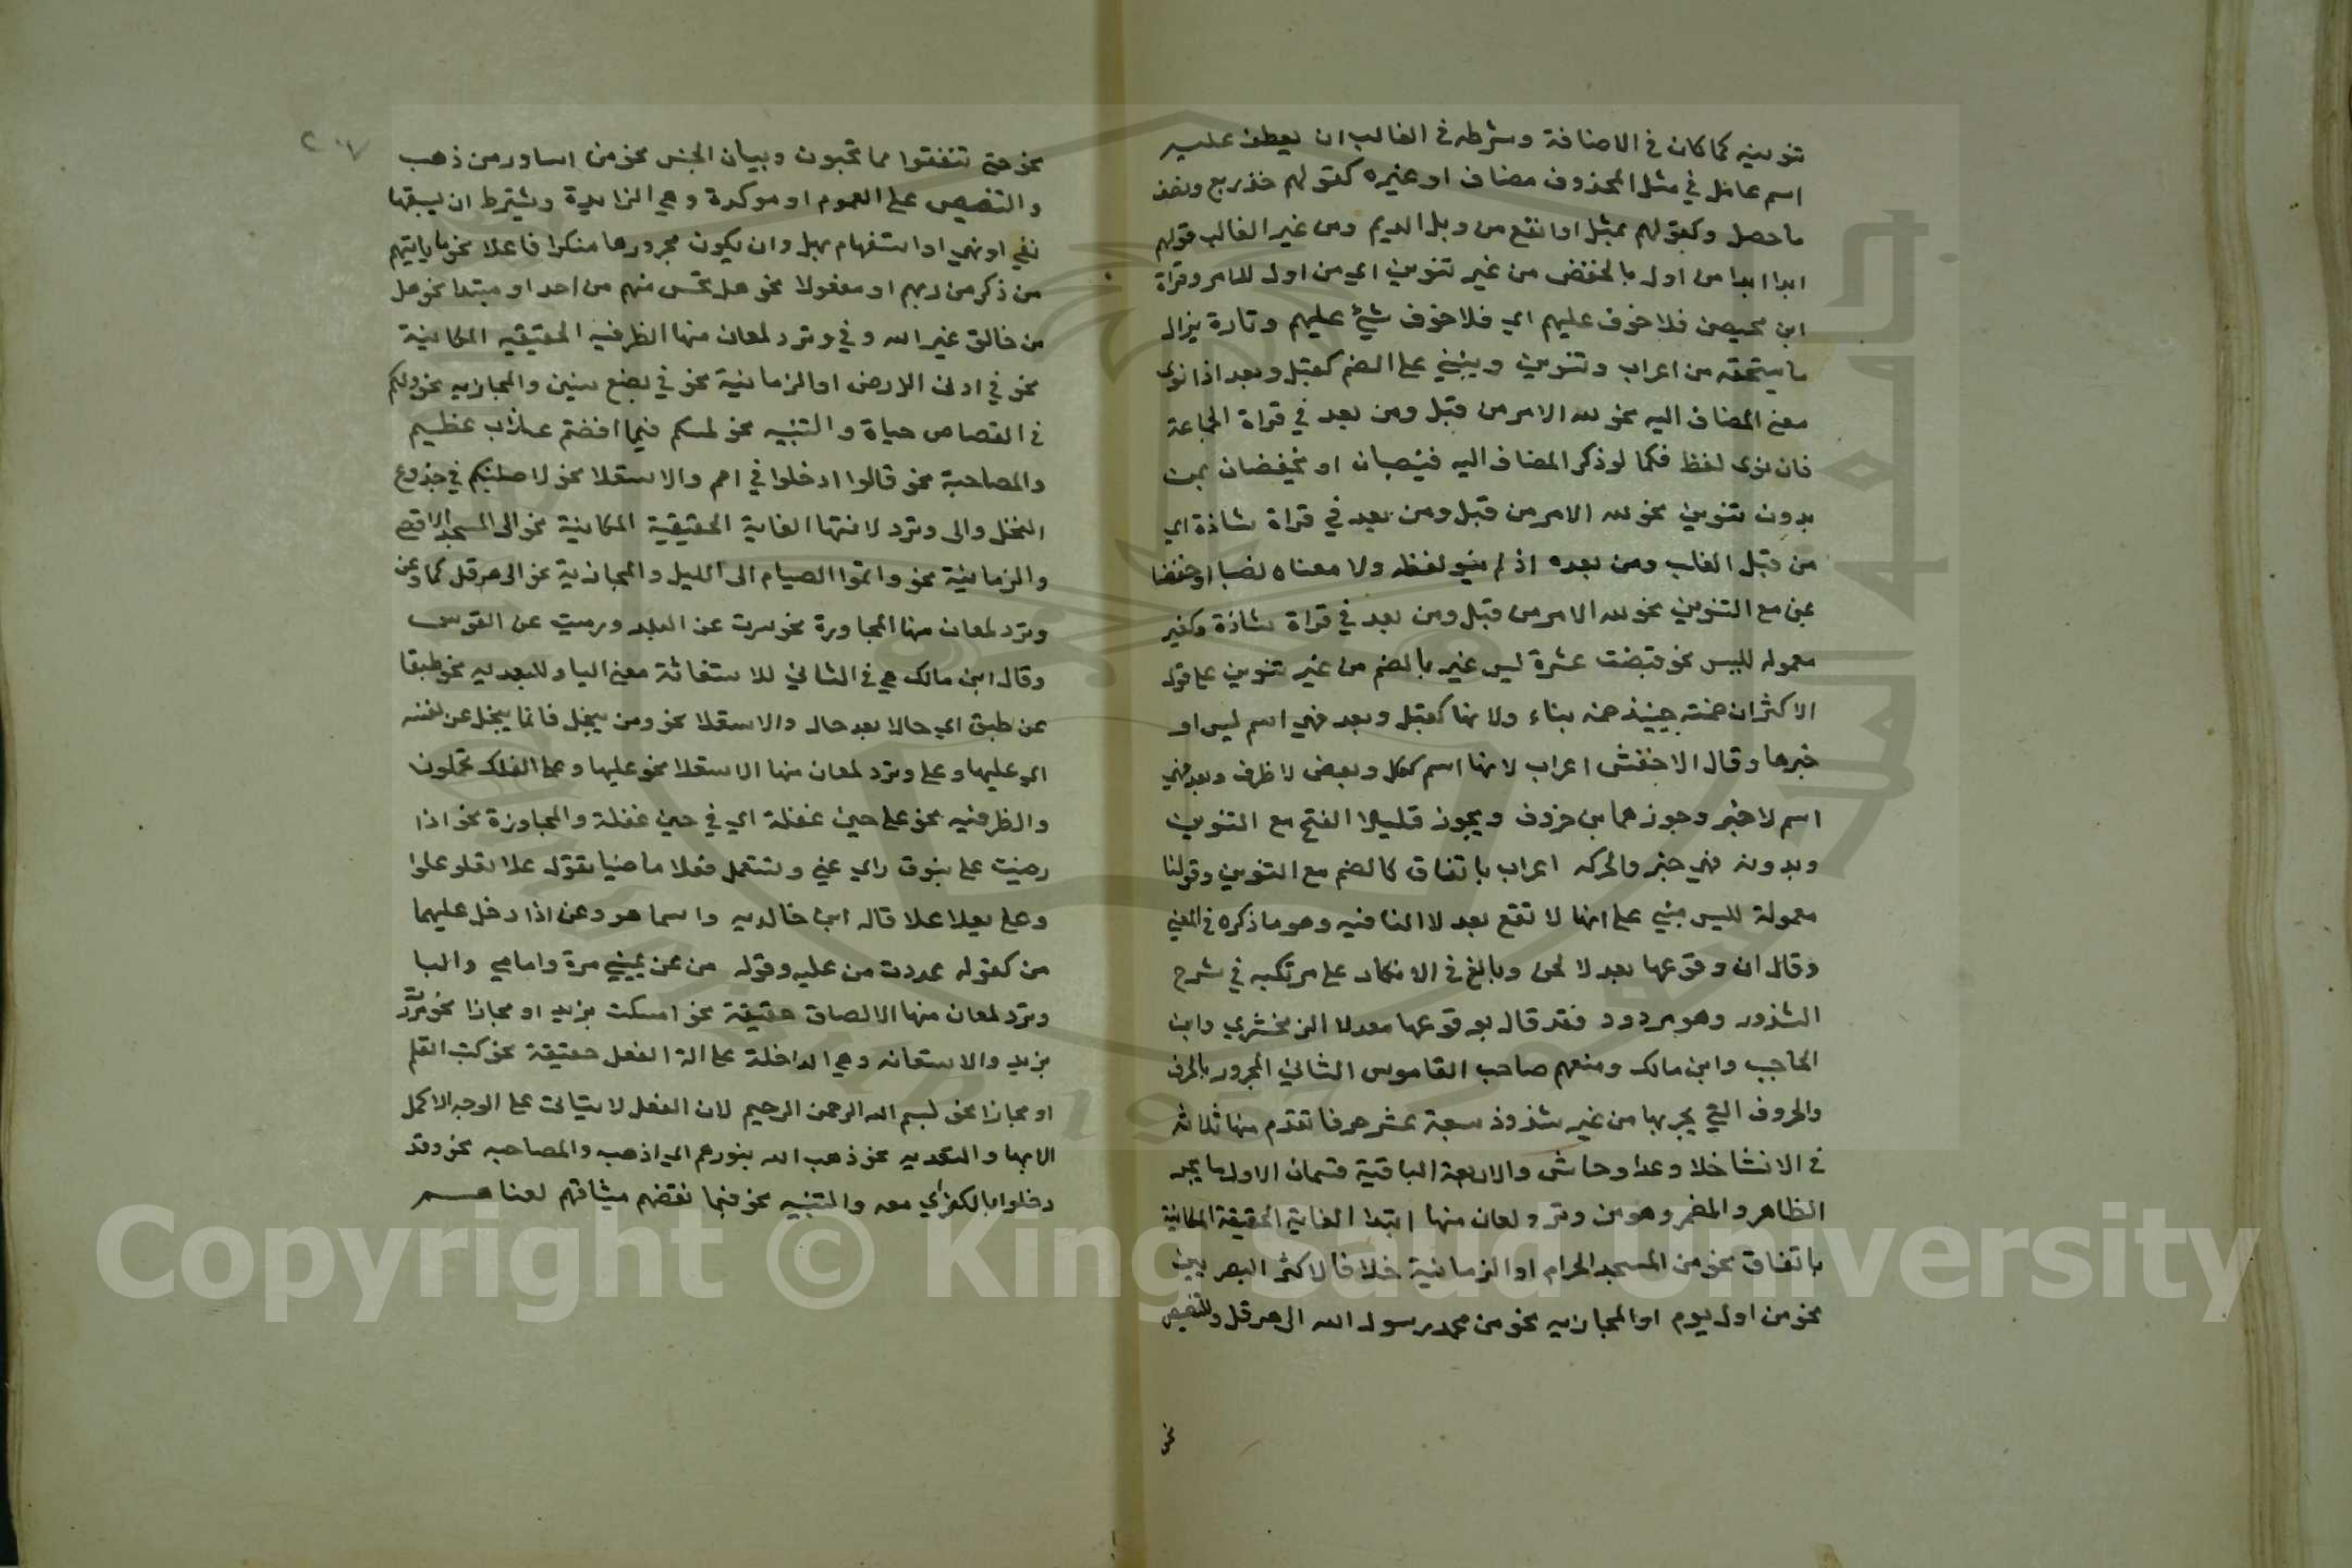 تنوينه كما كان في الاضافة وشرطه في الغالب ان يعطف عليه
اسم عامل في مثل المحذوف مضاف او غيره كقولهم خذ ربع ونصف
ما حصل وكقولهم بمثل او انفع من وبل الديم ومن غير الغالب قولهم
ابدا ابدا من اول بالخفض من غير تنوين اي من اول الامر وقراة
ابن محيصن فلا خوف عليهم اي فلا خوف شيء عليهم وتارة يزال
ما يستحقه من اعراب وتنوين ويبنى على الضم كقبل وبعد اذا نوى
معنى المضاف اليه نحو لله الامر من قبل ومن بعد في قراة الجماعة
فان نوى لفظ فكما لو ذكر المضاف اليه فينصبان او يخفضان بمن
بدون تنوين نحو لله الامر من قبل ومن بعد في قراة شاذة اي
من قبل الغلب ومن بعده اذ لم ينو لفظه ولا معناه نصبا او خفضا
بمن مع التنوين نحو لله الامر من قبل ومن بعد في قراة شاذة وكغير
معموله لليس نحو قبضت عشرة ليس غير بالضم من غير تنوين على قول
الاكثر ان ضمته حينئذ ضمه بناء ولانها كقبل وبعد فهي اسم ليس او
خبرها وقال الاخفش اعراب لانها اسم ككل وبعض لا ظرف وبعد فهي
اسم لا خبر وجوزهما بن خروف ويجوز قليلا الفتح مع التنوين
وبدونه فهي خبر والحركه اعراب باتفاق كالضم مع التنوين وقولنا
معمولة لليس مبني على انها لا تقع بعد لا النافيه وهو ما ذكره في المغني
وقال ان وقوعها بعد لا لحن وبالغ في الانكار على مرتكبه في شرح
الشذور وهو مردود فقد قال بوقوعها بعد لا الزمخشري وابن
الحاجب وابن مالك ومنعهم صاحب القاموس الثاني المجرور بالحرف
والحروف التي يجر بها من غير شذوذ سبعة عشر حرفا تقدم منها ثلاثه
في الانشا خلا وعدا وحاشى والاربعة الباقية قسمان الاول ما يجر
الظاهر والمضمر وهو من وترد لمعان منها ابتدا الغاية الحقيقة المكانية
باتفاق نحو من المسجد الحرام او الزمانية خلافا لاكثر البصريين
نحو من اول يوم او المجازيه نحو من محمد رسول الله الى هرقل وللتبعيض
نحو
٢٠٧
نحو حتى تنفقوا مما تحبون وبيان الجنس نحو من اساور من ذهب
والتنصيص على العموم او موكدة وهي الزايدة ويشترط ان يسبقها
نفي او نهي او استفهام بهل وان يكون مجرورها منكرا فاعلا نحو ما ياتيهم
من ذكر من ربهم او مفعولا نحو هل تحس منهم من احد او مبتدا نحو هل
من خالق غير الله وفي وترد لمعان منها الظرفيه الحقيقيه المكانية
نحو في ادنى الارض او الزمانية نحو في بضع سنين والمجازيه نحو ولكم
في القصاص حياة والتنبيه نحو لمسكم فيما افضتم عذاب عظيم
والمصاحبة نحو قالوا ادخلوا في امم والاستعلا نحو لاصلبنكم في جذوع
النخل والى وترد لانتها الغاية الحقيقية المكانية نحو الى المسجد الاقصى
والزمانية نحو واتموا الصيام الى الليل والمجازية نحو الى هرقل كما وعن
وترد لمعان منها المجاوزة نحو سرت عن البلد ورميت عن القوس
وقال ابن مالك هي في الثاني للاستعانة معنى البا وللبعديه نحو طبقا
عن طبق اي حالا بعد حال والاستعلا نحو ومن يبخل فانما يبخل عن نفسه
اي عليها وعلى وترد لمعان منها الاستعلا نحو عليها وعلى الفلك تحملون
والظرفيه نحو على حين غفلة اي في حين غفلة والمجاوزة نحو اذا
رضيت على بنوق راي عني وتستعمل فعلا ماضيا تقول علا يعلو علوا
وعلى يعلا علا قاله ابن خالديه واسما هو وعن اذا دخل عليهما
من كقوله عددت من عليه وقوله من عن يميني مرة وامامي والبا
وترد لمعان منها الالصاق حقيقة نحو امسكت بزيد او مجازا نحو مررت
بزيد والاستعانه وهي الداخلة على الة الفعل حقيقة نحو كتب القلم
او مجازا نحو بسم الله الرحمن الرحيم لان الفعل لا يتاتى على الوجه الاكمل
الا بها والتعديه نحو ذهب الله بنورهم اي اذهب والمصاحبه نحو وقد
دخلوا بالكفر اي معه والتنبيه نحو فبما نقضهم ميثاقهم لعناهم
Copyright © King Saud University